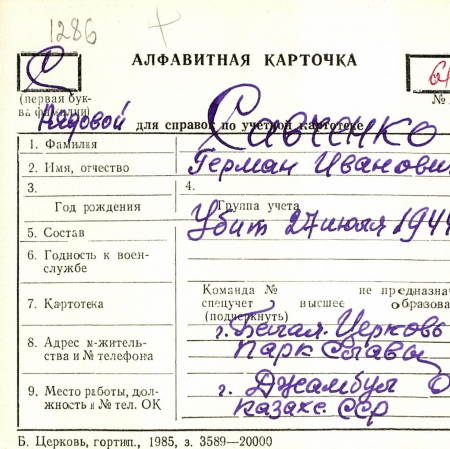 1286
АЛФАВИТНАЯ КАРТОЧКА
С
(первая бук-
ва фамилии)
№
Рядовой
для справок по учетной картотеке
1. Фамилия Савченко
2. Имя, отчество Герман Иванович
3. 4.
Год рождения Группа учета
5. Состав Убит 27 июля 1944
6. Годность к воен-
службе
7. Картотека
Команда № не предназна
спецучет высшее образова
(подчеркнуть)
8. Адрес м-житель-
ства и № телефона
г. Белая Церковь
Парк Славы
9. Место работы, дол-
жность и № тел. ОК
г. Джамбул
Казахс. ССР
Б. Церковь, гортип., 1985, з. 3589—20000